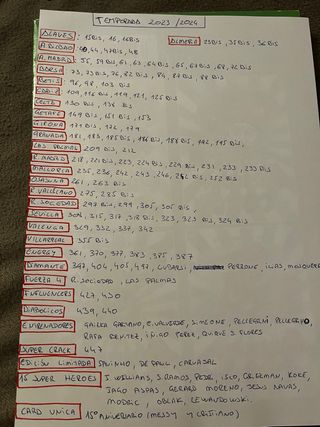 TEMPORADA 2023/2024
ALAVES: 15 BIS, 16, 16 BIS
ALMERIA 23 BIS, 35 BIS, 36 BIS
A. BILBAO 44, 47 BIS, 48
A. MADRID 55, 59 BIS, 61, 63, 64 BIS, 65, 67 BIS, 68, 72 BIS
BARSA 73, 73 BIS, 76, 82 BIS, 84, 87 BIS, 88 BIS
BETIS 96, 98, 103 BIS
CADIZ 109, 116 BIS, 119, 121, 126 BIS
CELTA 130 BIS, 138 BIS
GETAFE 149 BIS, 151 BIS, 153
GIRONA 171 BIS, 172, 179
GRANADA 181, 183, 185 BIS, 186 BIS, 188 BIS, 192, 195 BIS
LAS PALMAS 209 BIS, 212
R. MADRID 218, 221 BIS, 223, 224 BIS, 229 BIS, 231, 233, 233 BIS
MALLORCA 235, 236, 242, 243, 246, 252 BIS
OSASUNA 261, 263 BIS
R. VALLECANO 275, 285 BIS
R. SOCIEDAD 297 BIS, 299, 305, 305 BIS
SEVILLA 308, 315, 317, 318 BIS, 323, 323 BIS, 324 BIS
VALENCIA 329, 332, 337, 342
VILLARREAL 355 BIS
ENERGY 361, 370, 377, 383, 385, 387
DIAMANTE 397, 404, 405, 417, CUBARSI, PERRONE, ILIAS, MOSQUERA
FUERZA 4 R. SOCIEDAD, LAS PALMAS
INFLUENCERS 427, 430
DIABOLICOS 439, 440
ENTRENADORES GAIZKA GARITANO, E. VALVERDE, SIMEONE, PELLEGRINI, PELLEGRINO,
RAFA BENITEZ, IÑIGO PEREZ, QUIQUE S. FLORES
SUPER CRACK 447
EDICION LIMITADA SAVINHO, DE PAUL, CARVAJAL
15 SUPER HEROES I. WILLIAMS, S. RAMOS, PEDRI, ISCO, GRIEZMAN, KOKE,
IAGO ASPAS, GERARD MORENO, JESUS NAVAS,
MODRIC, OBLAK, LEWANDOWSKI.
CARD UNICA 15º ANIVERSARIO (MESSY Y CRISTIANO)